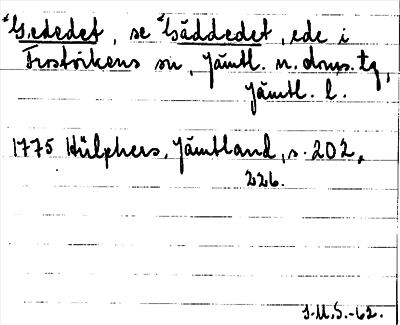 Gededet, se Gäddedet, ede i
Frostvikens sn, Jämtl. n. doms. tg,
Jämtl. l.
1775 Hülphers, Jämtland, s. 202,
226.
J.M.S.-62.